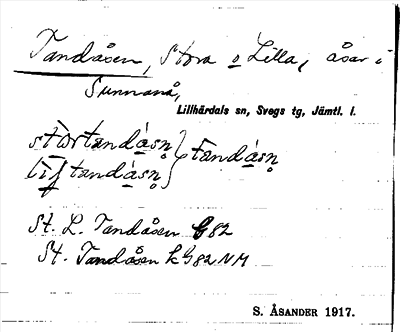 Tandåsen, Stora o Lilla, åsar i
Sunnanå,
Lillhärdals sn, Svegs tg, Jämtl. l.
stortandåsn̥ } tandåsn̥
tandåsn̥
St. L. Tandåsen G 82
St. Tandåsen k G 82 NM
S. ÅSANDER 1917.